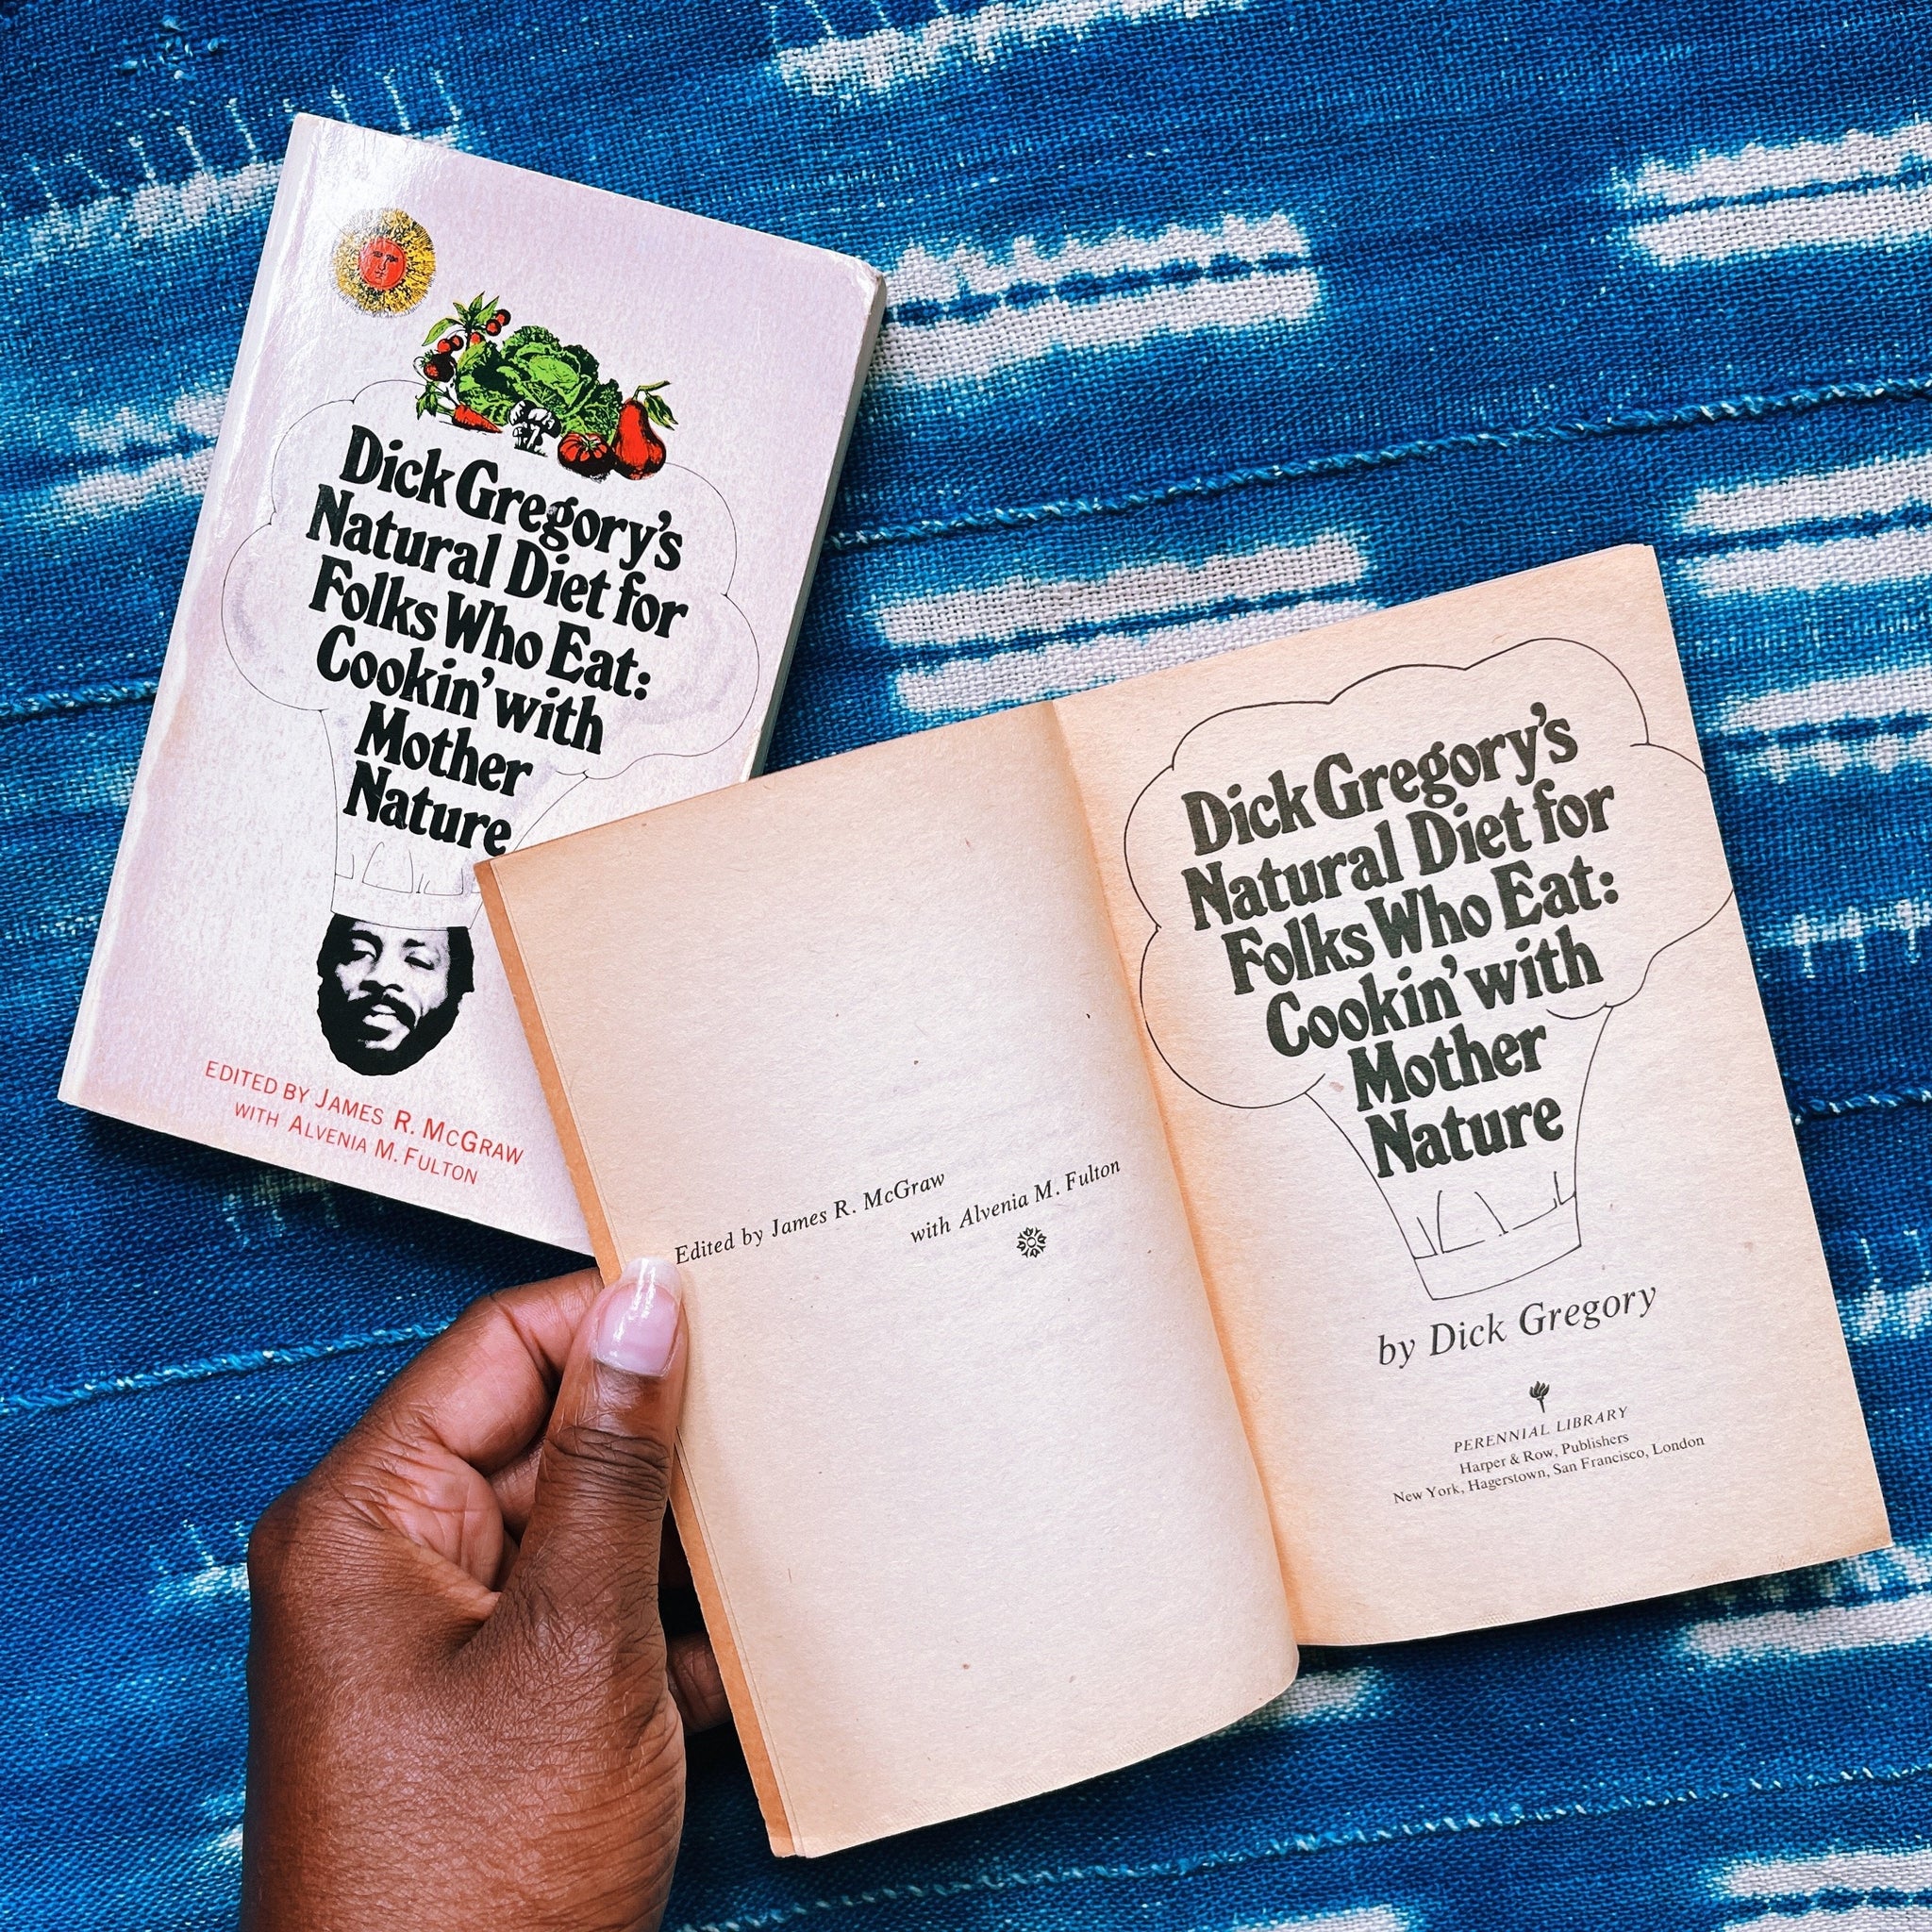 Dick Gregory's
Natural Diet for
Folks Who Eat:
Cookin' with
Mother
Nature
EDITED BY JAMES R. MCGRAW
WITH ALVENIA M. FULTON
Edited by James R. McGraw
with Alvenia M. Fulton
Dick Gregory's
Natural Diet for
Folks Who Eat:
Cookin' with
Mother
Nature
by Dick Gregory
PERENNIAL LIBRARY
Harper & Row, Publishers
New York, Hagerstown, San Francisco, London